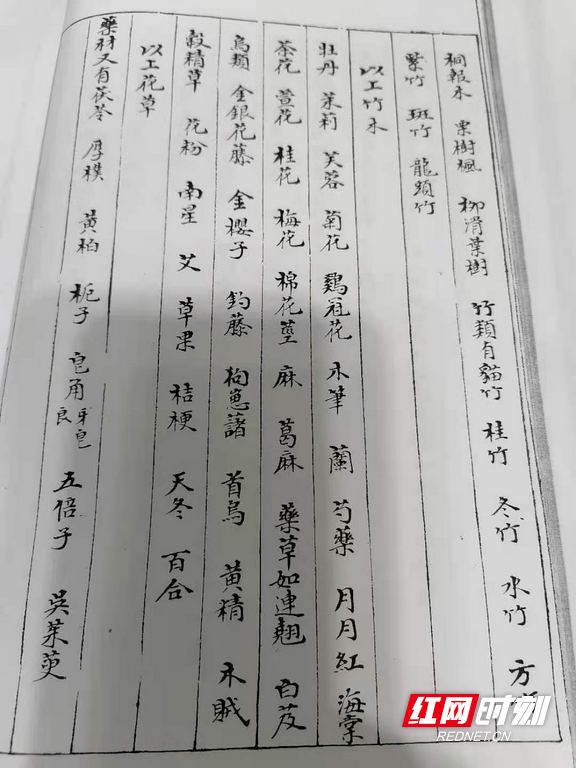 桐報木 栗樹楓 柳滑葉樹 竹類有貓竹 桂竹 冬竹 水竹 方
紫竹 斑竹 龍頭竹
以上竹木
牡丹 茉莉 芙蓉 菊花 鷄冠花 木筆 蘭 芍藥 月月紅 海棠
茶花 萱花 桂花 梅花 棉花 麻 葛麻 藥草如連翹 白芨
烏類 金銀花藤 金櫻子 鈎藤 枸 首烏 黃精 木賊
穀精草 花粉 南星 艾 草果 桔梗 天冬 百合
以上花草
藥材又有茯苓 厚樸 黃柏 梔子 皂角 良牙皂 五倍子 吳茱萸
红网时刻
REDNET.CN